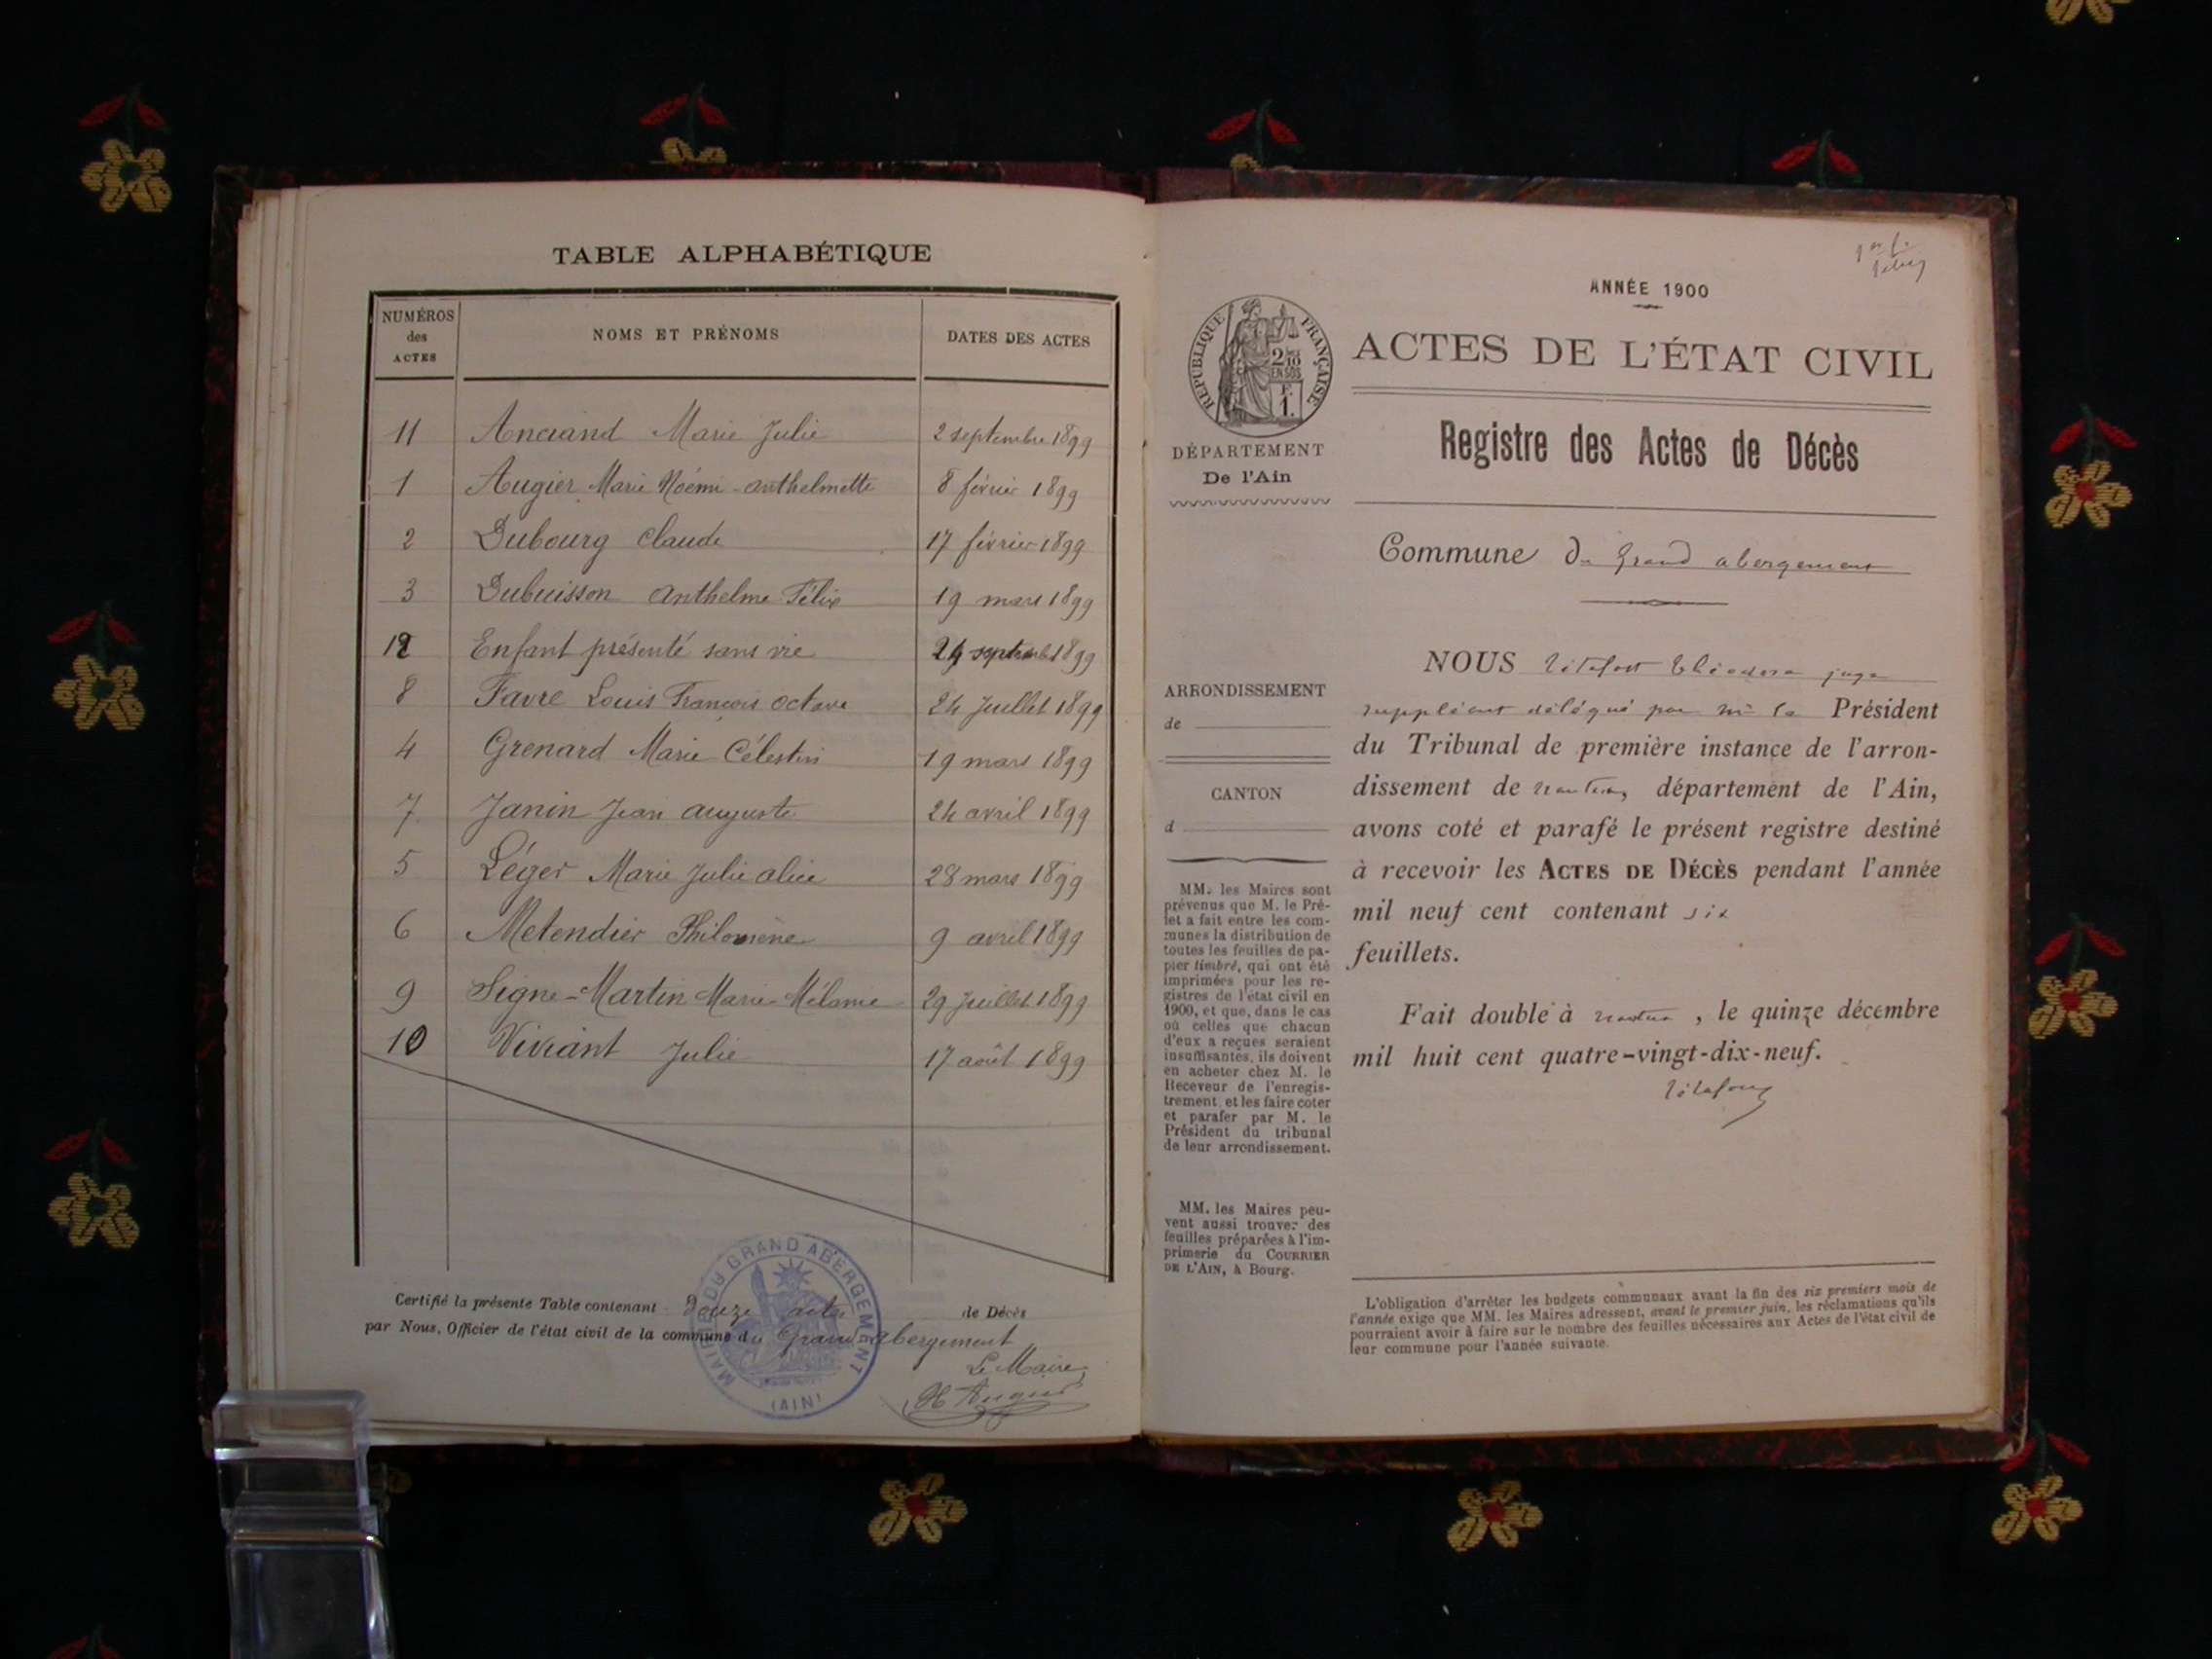 TABLE ALPHABÉTIQUE
NUMÉROS des ACTES
NOMS ET PRÉNOMS
DATES DES ACTES
11 Anciand Marie Julie 2 septembre 1899
1 Augier Marie Noémi-anthelmette 8 février 1899
2 Dubourg Claude 17 février 1899
3 Dubuisson Anthelme Félix 19 mars 1899
12 Enfant présenté sans vie 24 septembre 1899
8 Favre Louis François octave 24 Juillet 1899
4 Grenard Marie Célestin 19 mars 1899
7 Janin Jean Auguste 24 avril 1899
5 Léger Marie Julie alice 28 mars 1899
6 Metendier Philomène 9 avril 1899
9 Signe-Martin Marie-Mélanie 29 Juillet 1899
10 Viviant Julie 17 août 1899
Certifié la présente Table contenant douze actes de Décès
par Nous, Officier de l'état civil de la commune du Grand abergement
Le Maire
H Augier
MAIRIE DU GRAND ABERGEMENT
(AIN)
ANNÉE 1900
RÉPUBLIQUE FRANÇAISE
2/10
EN SUS
F.
1.
ACTES DE L'ÉTAT CIVIL
Registre des Actes de Décès
DÉPARTEMENT
De l'Ain
Commune du Grand abergement
ARRONDISSEMENT
de
CANTON
d
MM. les Maires sont
prévenus que M. le Pré-
fet a fait entre les com-
munes la distribution de
toutes les feuilles de pa-
pier timbré, qui ont été
imprimées pour les re-
gistres de l'état civil en
1900, et que, dans le cas
où celles que chacun
d'eux a reçues seraient
insuffisantes, ils doivent
en acheter chez M. le
Receveur de l'enregis-
trement, et les faire coter
et parafer par M. le
Président du tribunal
de leur arrondissement.
MM. les Maires peu-
vent aussi trouver des
feuilles préparées à l'im-
primerie du COURRIER
DE L'AIN, à Bourg.
NOUS juge
suppléant délégué par Mr le Président
du Tribunal de première instance de l'arron-
dissement de nantua, département de l'Ain,
avons coté et parafé le présent registre destiné
à recevoir les ACTES DE DÉCÈS pendant l'année
mil neuf cent contenant six
feuillets.
Fait double à nantua, le quinze décembre
mil huit cent quatre-vingt-dix-neuf.
L'obligation d'arrêter les budgets communaux avant la fin des six premiers mois de
l'année exige que MM. les Maires adressent, avant le premier juin, les réclamations qu'ils
pourraient avoir à faire sur le nombre des feuilles nécessaires aux Actes de l'état civil de
leur commune pour l'année suivante.